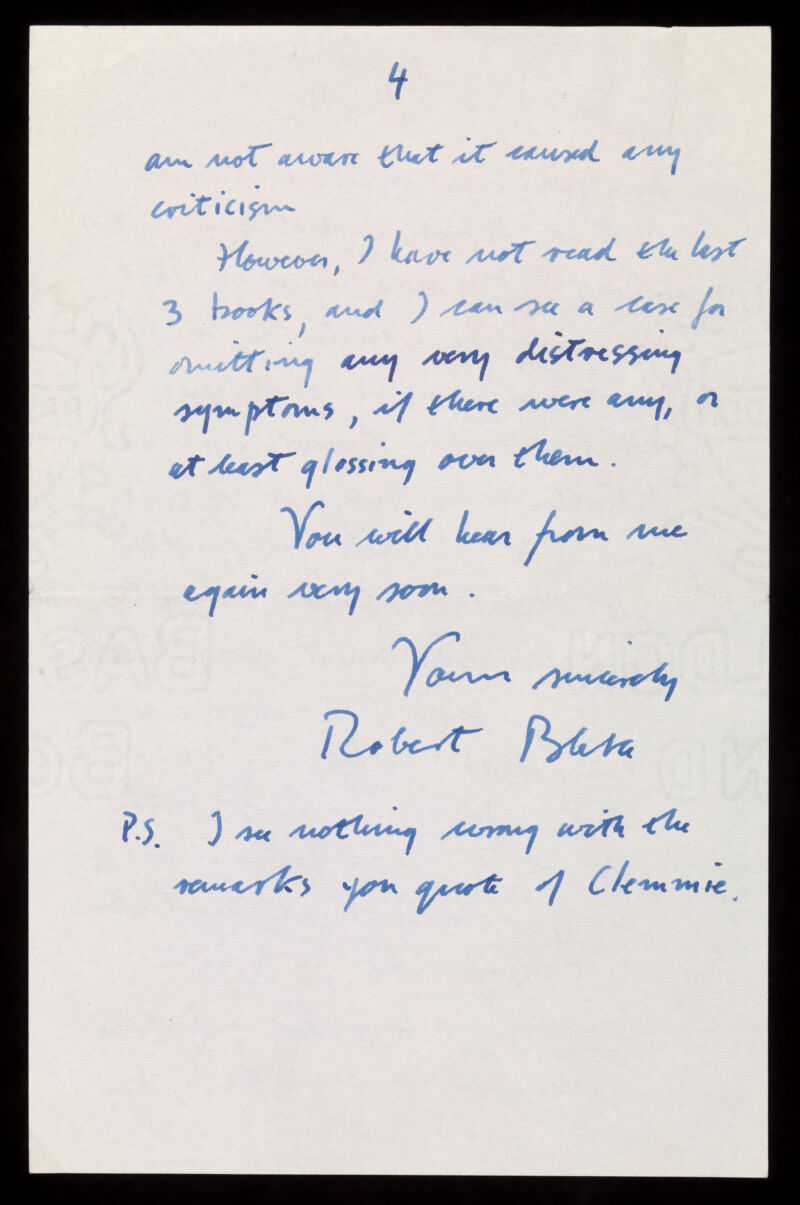 4
am not aware that it caused any
criticism
However, I have not read the last
3 books, and I can see a case for
omitting any very distressing
symptoms, if there were any, or
at least glossing over them.
You will hear from me
again very soon.
Yours sincerely
Robert Blake
P.S. I see nothing wrong with the
remarks you quote of Clemmie.